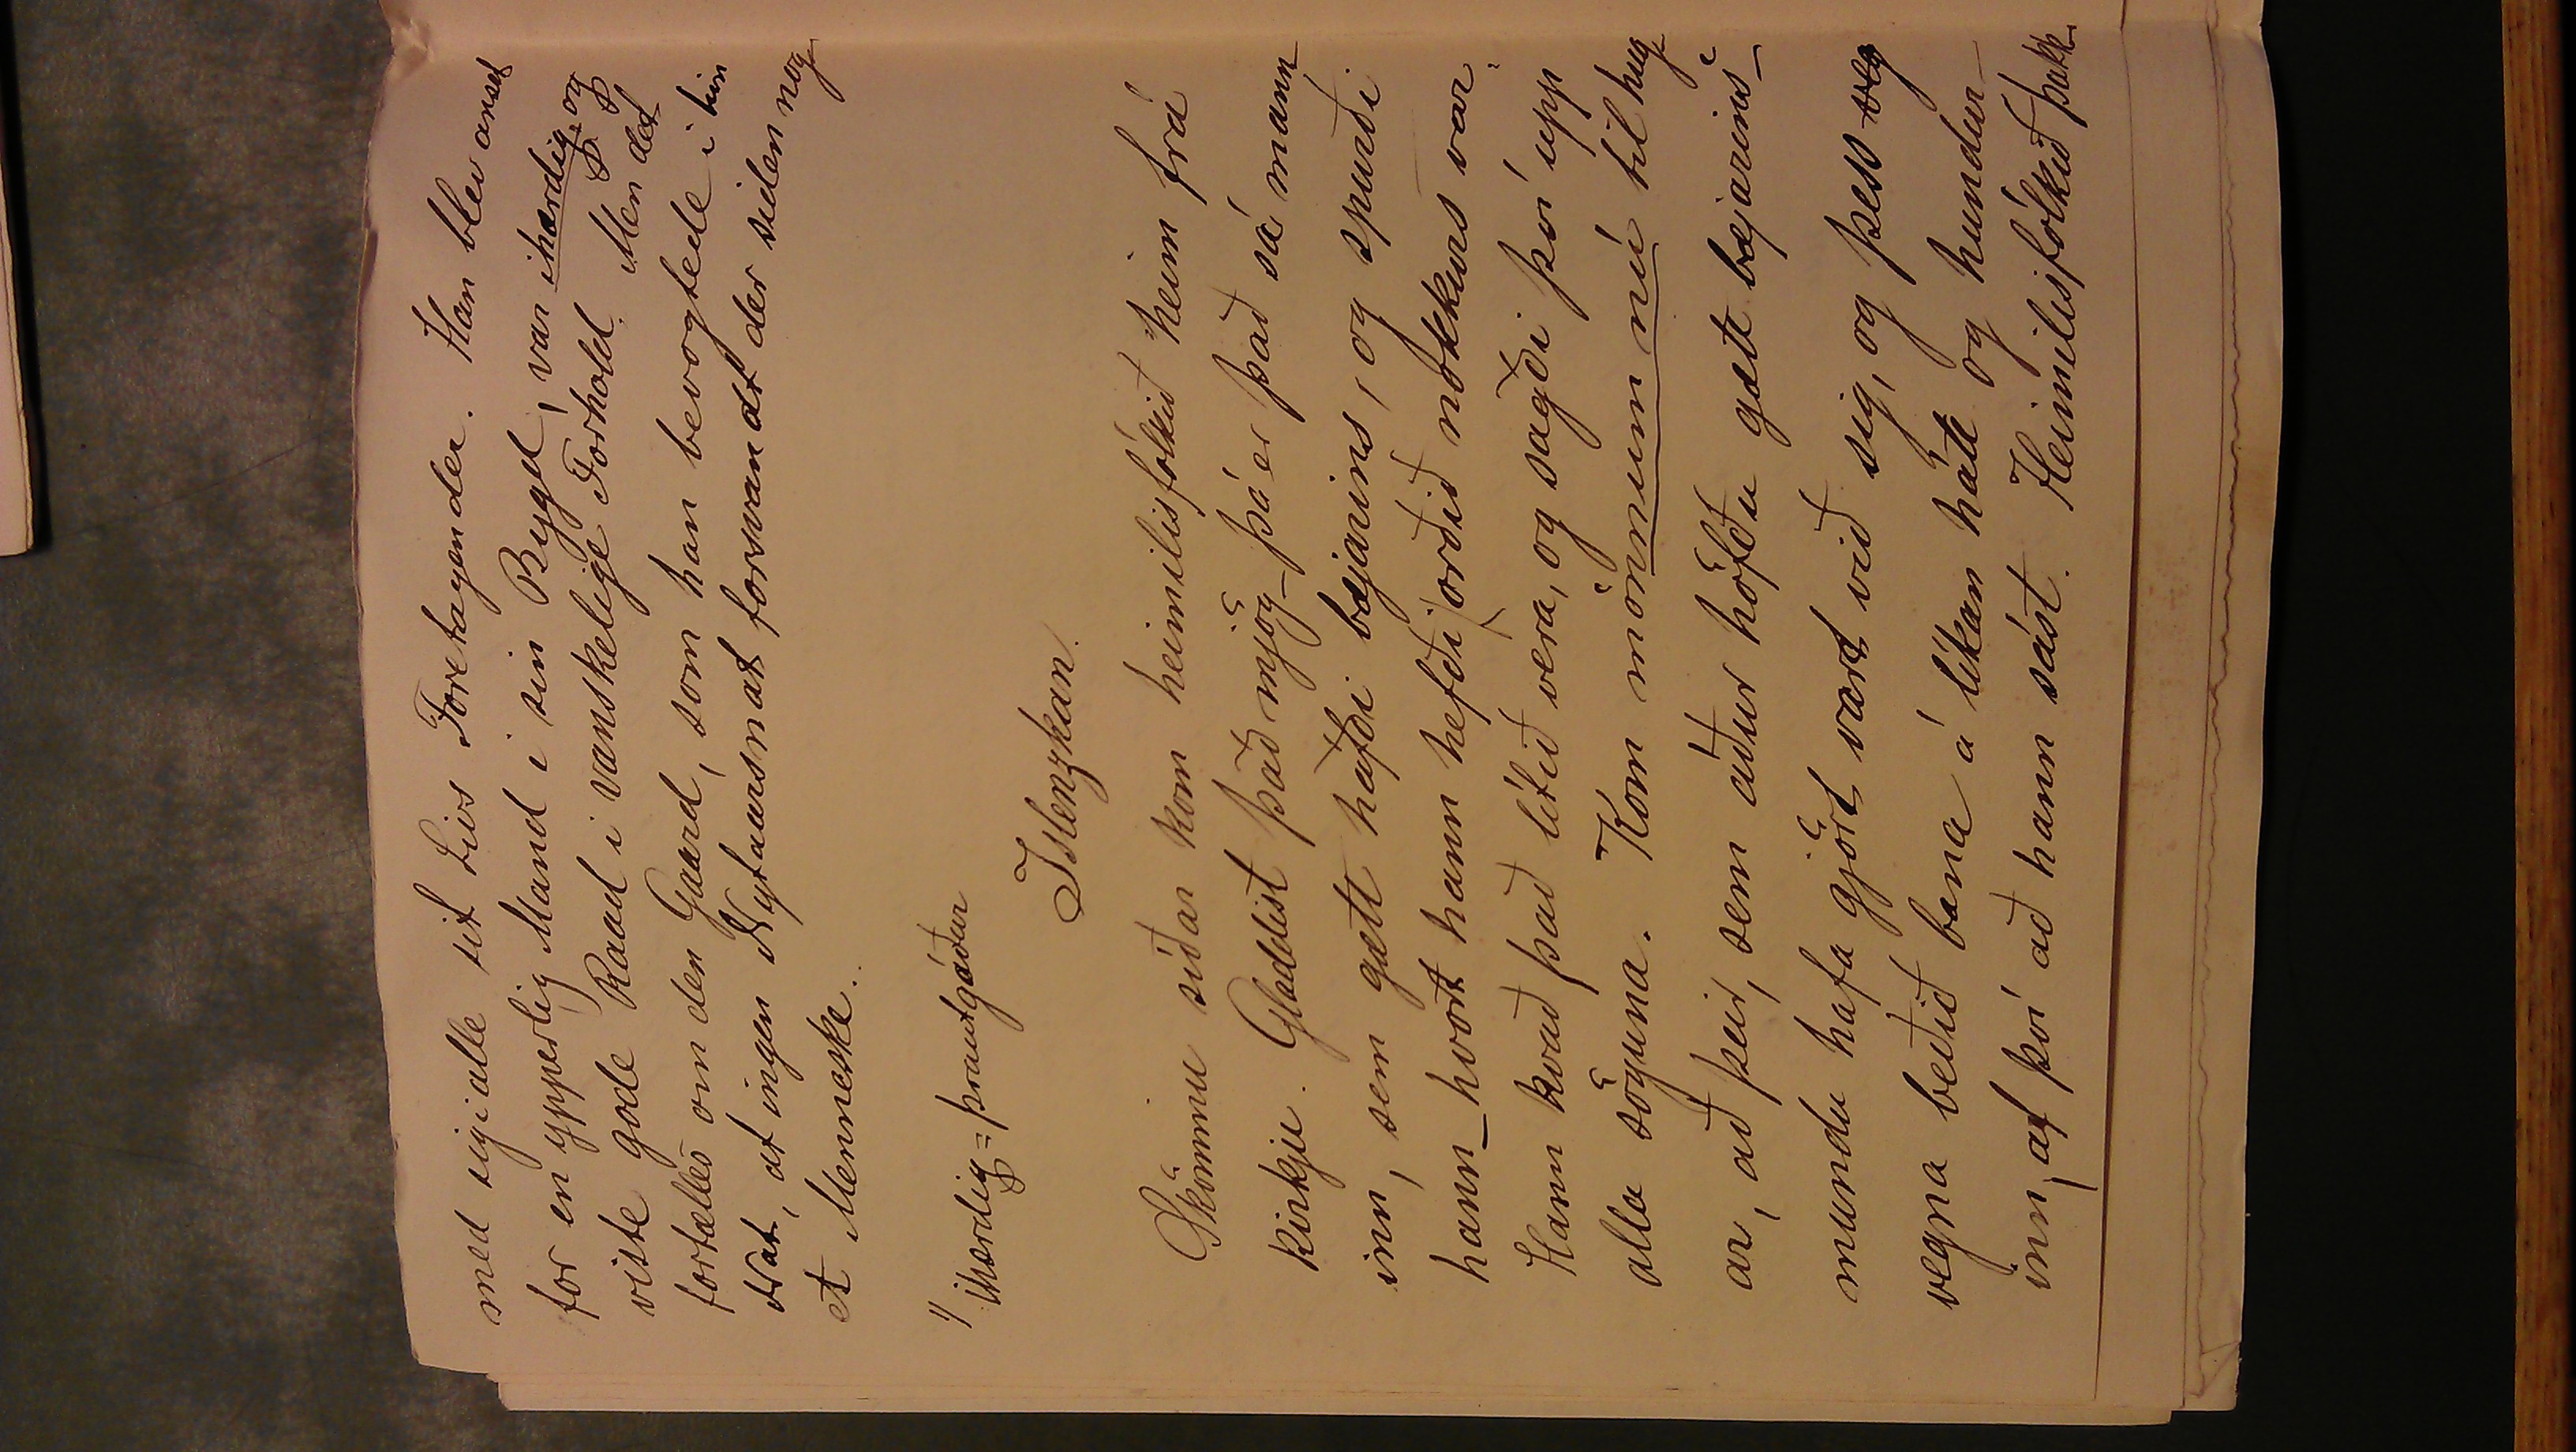 med sig i alle sit Livs Foretagender. Han blev anset
for en ypperlig Mand i sin Bygd, var ihærdig og
viste gode Raad i vanskelige Forhold. Men det
fortælles om den Gaard, som han bevogtede i hin
Nat, at ingen Nytaarsnat forsvandt der siden nog
et Menneske.
1) ihærdig = þrautgóður
Islenzkan.
Skömmu síðar kom heimilisfólkið heim frá
kirkju. Gladdist það mjög þá er það sá mann
inn, sem gætt hafði bæjarins, og spurði
hann hvort hann hefði orðið nokkurs var.
Hann kvað það lítið vera, og sagði því upp
alla söguna. Kom mönnum nú til hug
ar, að þeir, sem áður höfðu gætt bæjarins
mundu hafa gjört vart við sig, og þess veg
vegna beðið bana á líkan hátt og hundur
inn, af því að hann sást. Heimilisfólkið þakk